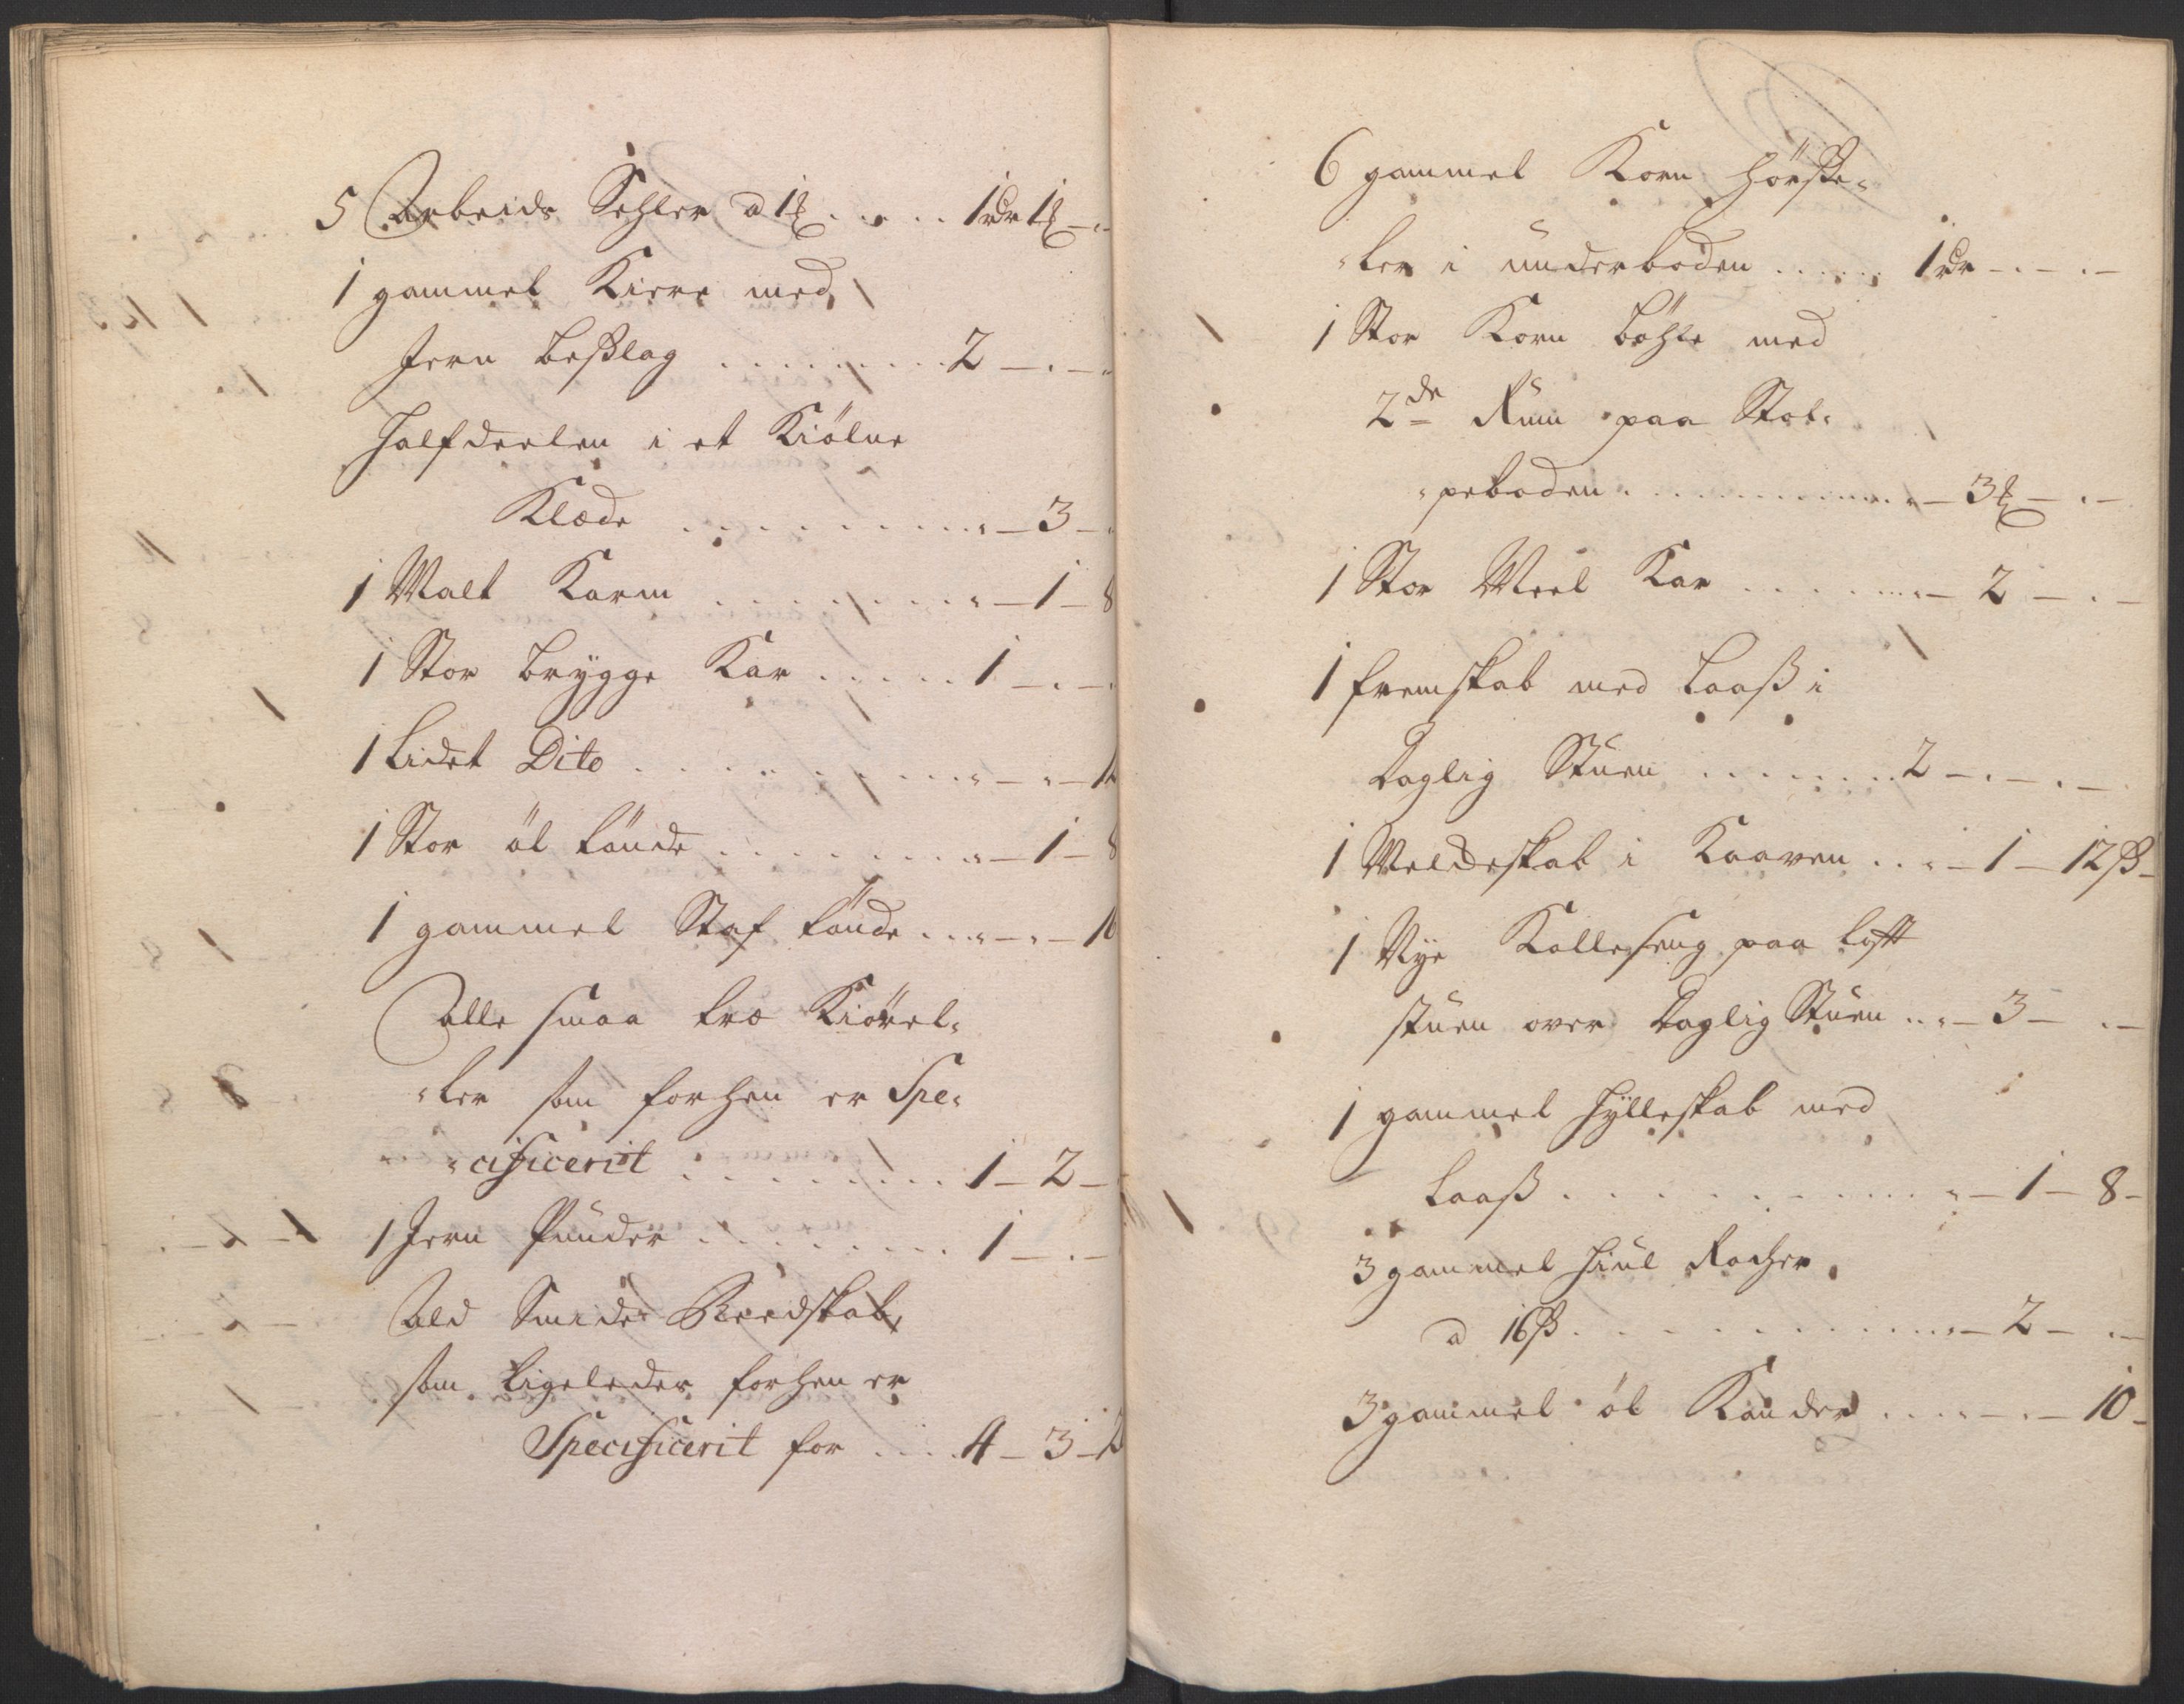 5 Arbeids Sehler a 1 ℔ . . . . 1 rdr 1 ℔ - . -
1 gammel Kierre med
Jern Beslag . . . . . . . . 2 - . -
Halfdeelen i et Kiölne
Klæde . . . . . . . . . - 3 -
1 Malt Karm . . . . . . . . - 1 - 8
1 Stor Brygge Kar . . . . . 1 - . -
1 Lidet Dito . . . . . . . . . - . - 12
1 Stor öl tönde . . . . . . . . - 1 - 8
1 gammel Staf tönde . . . . - . - 16
Alle smaa træ Kiörel-
-ler som forhen er Spe-
-cificerit . . . . . . . . 1 - 2 -
1 Jern Pünder . . . . . . . . 1 - . -
Ald Smide Reedskab,
som Ligeledes forhen er
Specificerit for . . . . 4 - 3 -
6 gammel Korn
-ler i ünderboden . . . . . 1 rdr - . - . -
1 Stor Korn Böhle med
2de Rüm paa Stab-
-peboden . . . . . . . . . . . - 3 ℔ - . -
1 Stor Meel Kar . . . . . . . - 2 - . -
1 fremskab med Laaß i
Daglig Stüen . . . . . . . . 2 - . - . -
1 Meldeskab i Kaaven . . . - 1 - 12 ß -
1 Nye Kalleseng paa loft
stüen over Daglig Stüen . . - 3 - . -
1 gammel Hylleskab med
Laaß . . . . . . . . . . . . - 1 - 8 -
3 gammel Hiül Rocher
a 16 ß . . . . . . . . . . . . - 2 - . -
3 gammel öl Kander . . . . - . - 10 -